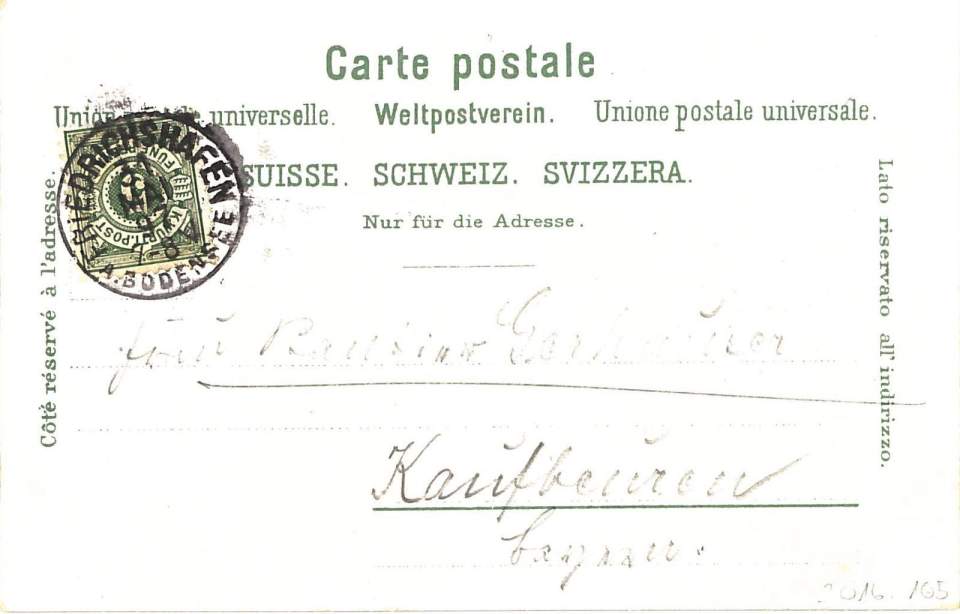 Carte postale
Union postale universelle. Weltpostverein. Unione postale universale.
SUISSE. SCHWEIZ. SVIZZERA.
Nur für die Adresse.
Côté réservé à l'adresse.
Lato riservato all'indirizzo.
FRIEDRICHSHAFEN
A. BODENSEE
7-8
K. WÜRTT. POST
FÜNF
Kaufbeuren
Bayern.
2016. 165